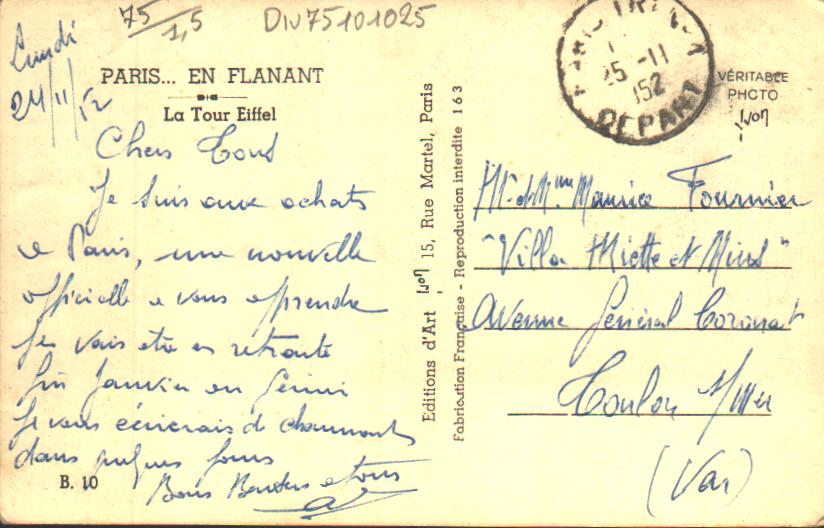 75
1,5
Div75101025
Lundi
24/11/52
PARIS... EN FLANANT
La Tour Eiffel
Chers Tous
Je suis aux achats
a Paris, une nouvelle
officielle a vous apprendre
Je vais etre en retraite
fin Janvier ou
Je vous écrierais de Chaumont
dans quelques jours
Bons Baisers a tous
B. 10
Editions d'Art Yvon 15, Rue Martel, Paris
Fabrication Française - Reproduction interdite 163
PARIS
25 -11
1952
DEPART
VÉRITABLE
PHOTO
Yvon
Mr et Mme Maurice Fournier
"Villa Miette et Mius"
Avenue Général Coronat
Toulon s/Mer
(Var)